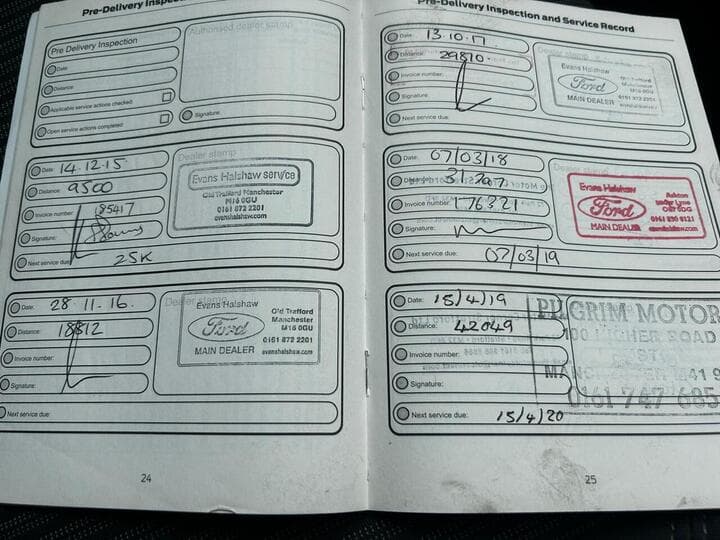 Pre-Delivery Inspec
Pre Delivery Inspection
Date:
Distance:
Applicable service actions checked:
Open service actions completed:
Authorised dealer stamp
Signature:
Date: 14.12.15
Distance: 9500
Invoice number: 185417
Signature:
Next service due: 25K
Dealer stamp
Evans Halshaw service
Old Trafford Manchester
M16 0GU
0161 872 2201
evanshalshaw.com
Date: 28.11.16.
Distance: 18812
Invoice number:
Signature:
Next service due:
Dealer stamp
Evans Halshaw
Ford
MAIN DEALER
Old Trafford
Manchester
M16 0GU
0161 872 2201
evanshalshaw.com
24
Pre-Delivery Inspection and Service Record
Date: 13.10.17
Distance: 29810.
Invoice number:
Signature:
Next service due:
Dealer stamp
Evans Halshaw
Ford
MAIN DEALER
Old Trafford
Manchester
M16 0GU
0161 872 2201
Date: 07/03/18
31,797
Invoice number: 176321
Signature:
Next service due: 07/03/19
Dealer stamp
Evans Halshaw
Ford
MAIN DEALER
Ashton
under Lyne
OL7 0DG
evanshalshaw.com
Date: 15/4/19
Distance: 42049
Invoice number:
Signature:
Next service due: 15/4/20
PILGRIM MOTOR
ROAD
M41 9
0161 747 685
25